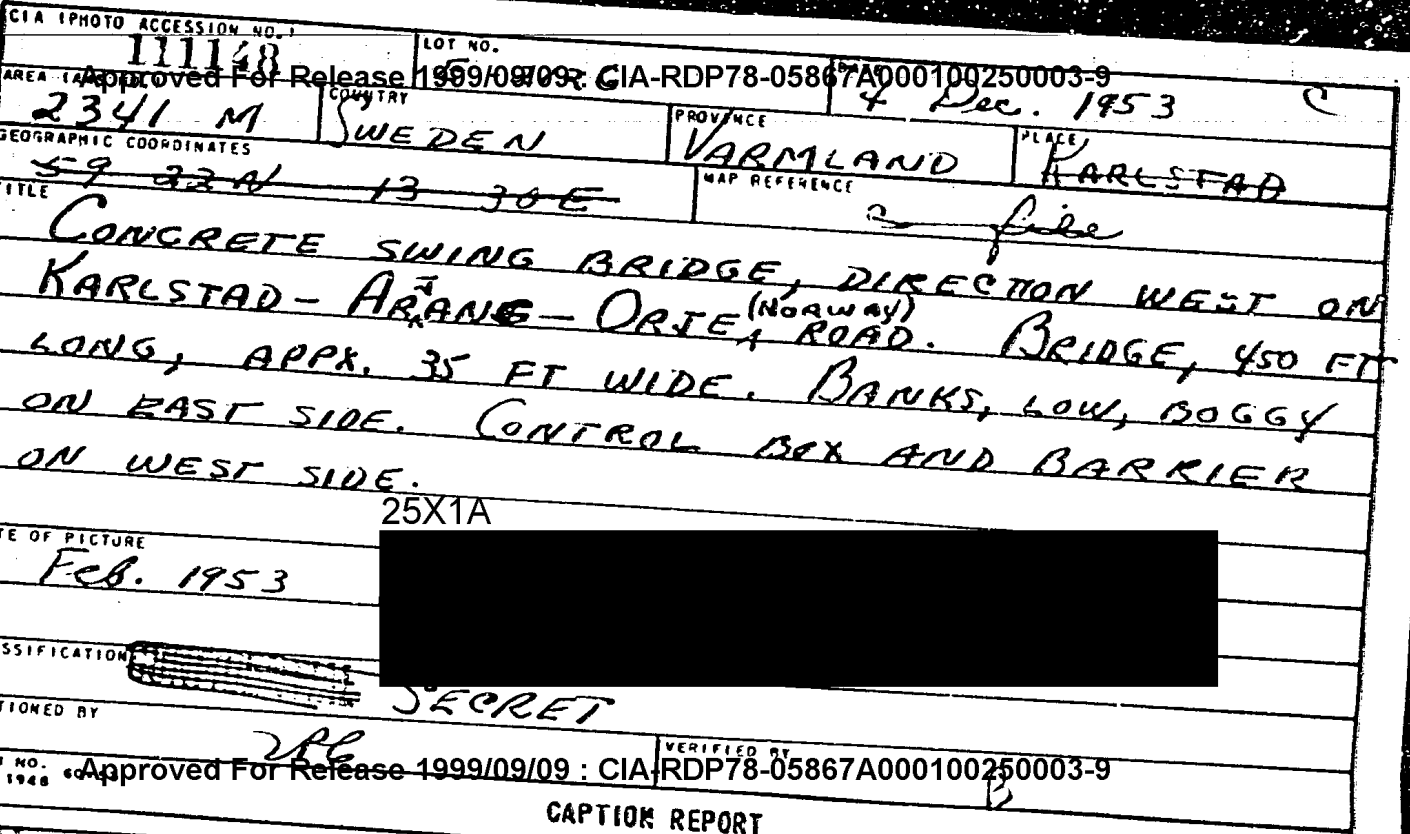 CIA (PHOTO ACCESSION NO.)
111148
LOT NO.
Approved For Release 1999/09/09 : CIA-RDP78-05867A000100250003-9
AREA
2341 M
COUNTRY
SWEDEN
4 Dec. 1953
C
PROVINCE
VARMLAND
PLACE
KARLSTAD
GEOGRAPHIC COORDINATES
59 22 N 13 30 E
MAP REFERENCE
file
TITLE
CONCRETE SWING BRIDGE, DIRECTION WEST ON
KARLSTAD - - ORJE (NORWAY) ROAD. BRIDGE, 450 FT
LONG, APPX. 35 FT WIDE. BANKS, LOW, BOGGY
ON EAST SIDE. CONTROL BOX AND BARRIER
ON WEST SIDE.
25X1A
TE OF PICTURE
Feb. 1953
SSIFICATION
SECRET
TIONED BY
VERIFIED BY
B
NO.
1948
Approved For Release 1999/09/09 : CIA-RDP78-05867A000100250003-9
CAPTION REPORT